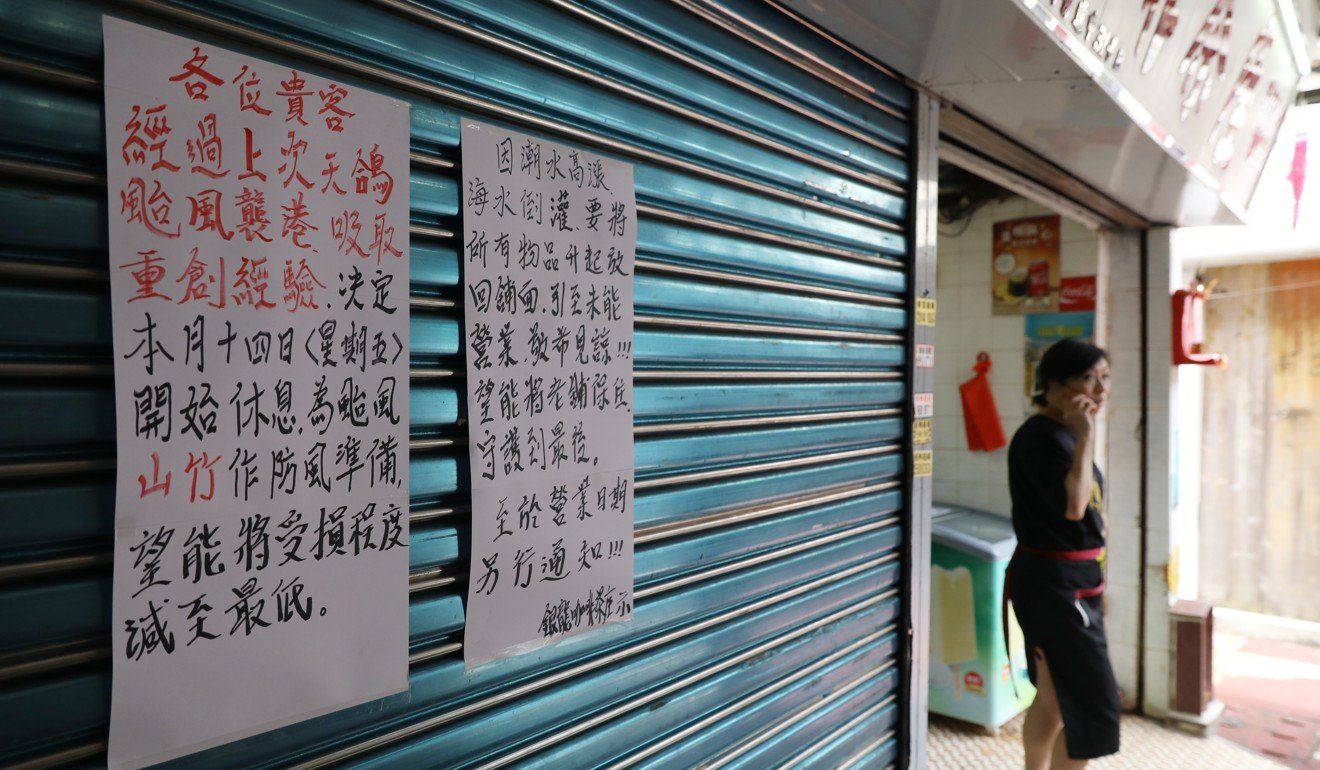 各位貴客
經過上次天鴿
颱風襲港.吸取
重創經驗.決定
本月十四日〈星期五〉
開始休息.為颱風
山竹作防風準備,
望能將受損程度
減至最低。
因潮水高漲.
海水倒灌.要將
所有物品升起放
回鋪面.引至未能
營業.敬希見諒!!!
望能將老鋪保住.
守護到最後。
至於營業日期
另行通知!!!
銀龍咖啡茶座示
Coca-Cola